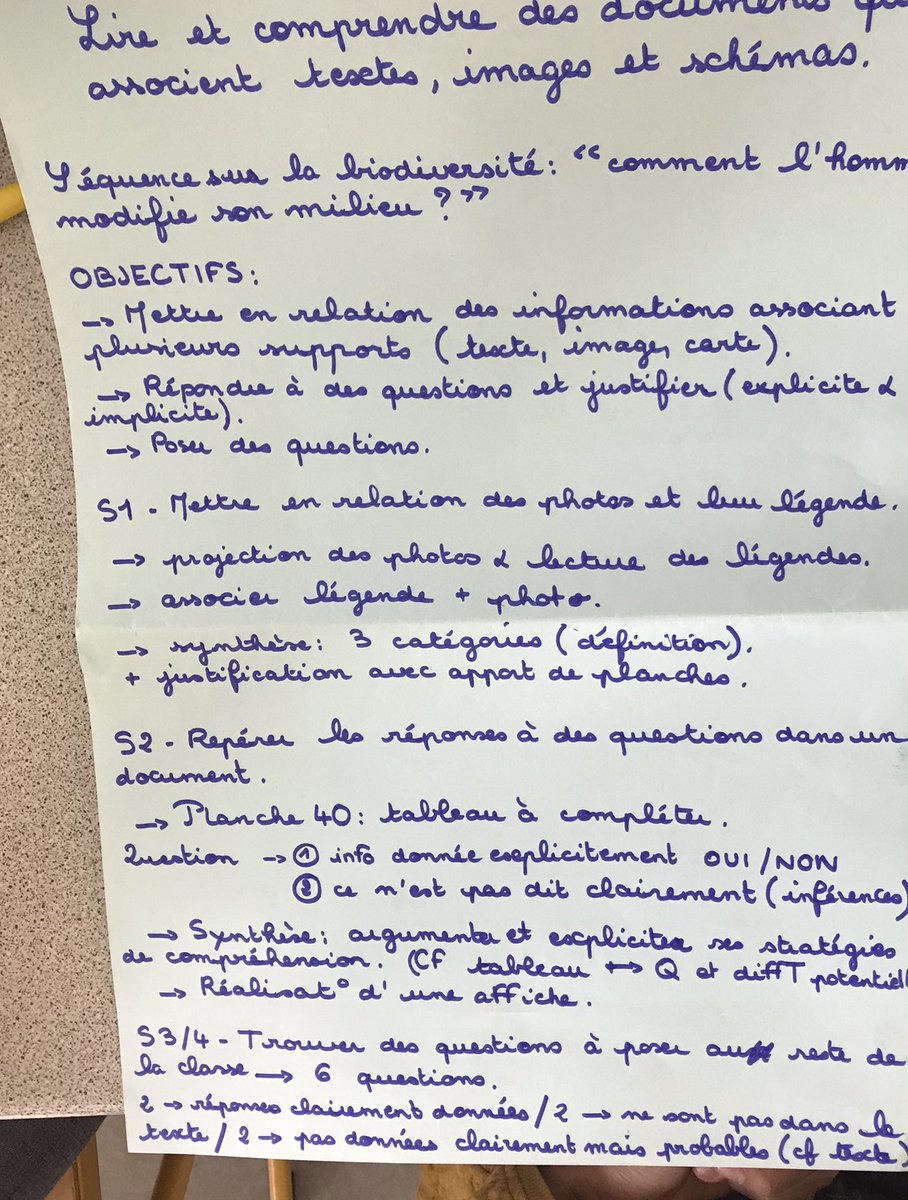 Lire et comprendre des documents qu
associent textes, images et schémas.
Séquence sur la biodiversité: "comment l'homm
modifie son milieu ?"
OBJECTIFS:
→ Mettre en relation des informations associant
plusieurs supports (texte, image, carte).
→ Répondre à des questions et justifier (explicite &
implicite).
→ Poser des questions.
S1 - Mettre en relation des photos et leur légende.
→ projection des photos & lecture des légendes.
→ associer légende + photo.
→ synthèse: 3 catégories (définition).
+ justification avec apport de planches.
S2 - Repérer les réponses à des questions dans un
document.
→ Planche 40: tableau à compléter.
Question → ① info donnée explicitement OUI/NON
② ce n'est pas dit clairement (inférences)
→ Synthèse: argumenter et expliciter ses stratégies
de compréhension. (Cf tableau ↔ Q et diffT potentiell
→ Réalisat° d'une affiche.
S3/4 - Trouver des questions à poser au reste de
la classe → 6 questions.
2 → réponses clairement données / 2 → ne sont pas dans le
texte / 2 → pas données clairement mais probables (cf texte)